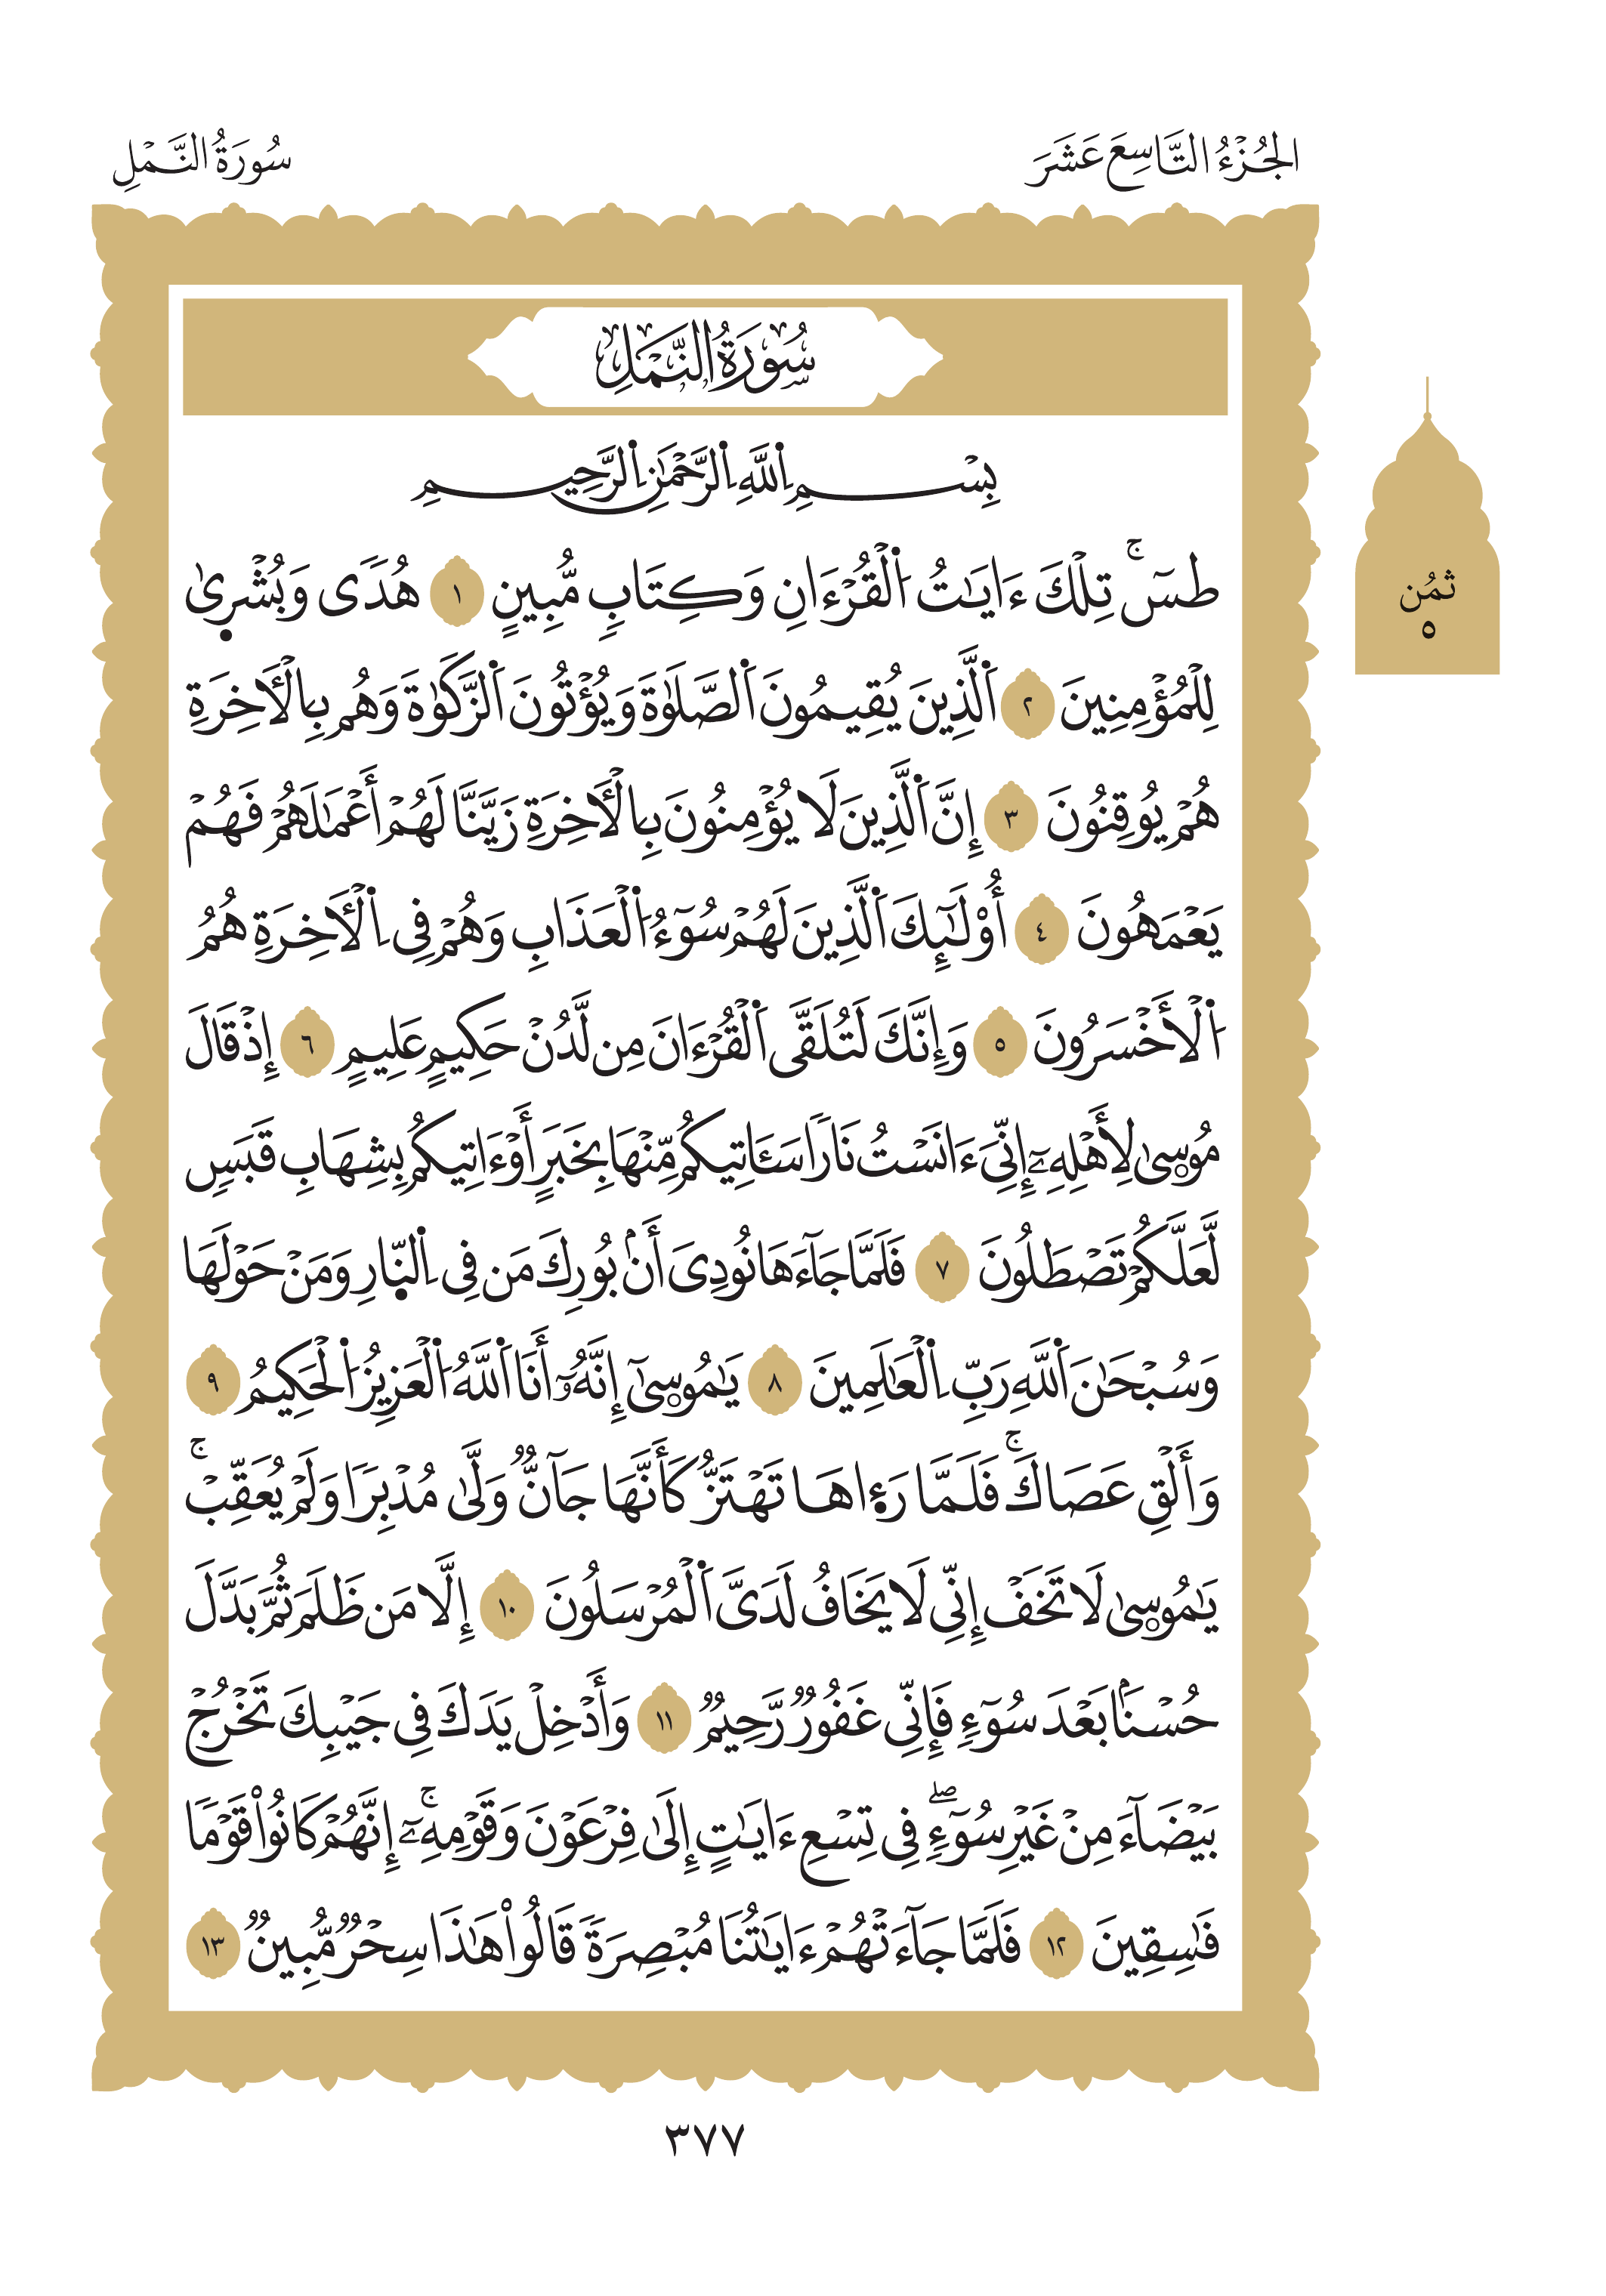 الجُزْءُ التَّاسِعَ عَشَرَ
سُورَةُ النَّمْلِ
سُورَةُ النَّمْلِ
بِسْمِ اِللَّهِ اِلرَّحْمَٰنِ اِلرَّحِيمِ
طسٓۚ تِلْكَ ءَايَٰتُ اُلْقُرْءَانِ وَكِتَابٖ مُّبِينٍ ١ هُدٗى وَبُشْر۪ىٰ
لِلْمُؤْمِنِينَ ٢ اَلذِينَ يُقِيمُونَ اَلصَّلَوٰةَ وَيُؤْتُونَ اَلزَّكَوٰةَ وَهُم بِالْأٓخِرَةِ
هُمْ يُوقِنُونَ ٣ إِنَّ اَلَّذِينَ لَا يُؤْمِنُونَ بِالْأٓخِرَةِ زَيَّنَّا لَهُمْ أَعْمَٰلَهُمْ فَهُمْ
يَعْمَهُونَ ٤ أُوْلَٰٓئِكَ اَلَّذِينَ لَهُمْ سُوٓءُ اُلْعَذَابِ وَهُمْ فِى اِلْأٓخِرَةِ هُمُ
اُلْأَخْسَرُونَ ٥ وَإِنَّكَ لَتُلَقَّى اَلْقُرْءَانَ مِن لَّدُنْ حَكِيمٍ عَلِيمٍ ٦ إِذْ قَالَ
مُوس۪ىٰ لِأَهْلِهِۦٓ إِنِّىَ ءَانَسْتُ نَارٗا سَـَٔاتِيكُم مِّنْهَا بِخَبَرٍ أَوْ ءَاتِيكُم بِشِهَابِ قَبَسٖ
لَّعَلَّكُمْ تَصْطَلُونَ ٧ فَلَمَّا جَآءَهَا نُودِىَ أَنۢ بُورِكَ مَن فِى اِلنّ۪ارِ وَمَنْ حَوْلَهَا
وَسُبْحَٰنَ اَللَّهِ رَبِّ اِلْعَٰلَمِينَ ٨ يَٰمُوس۪ىٰٓ إِنَّهُۥٓ أَنَا اَللَّهُ اُلْعَزِيزُ اُلْحَكِيمُ ٩
وَأَلْقِ عَصَاكَۚ فَلَمَّا رَء۪اهَا تَهْتَزُّ كَأَنَّهَا جَآنّٞ وَلَّىٰ مُدْبِرٗا وَلَمْ يُعَقِّبْۚ
يَٰمُوس۪ىٰ لَا تَخَفْ إِنِّى لَا يَخَافُ لَدَىَّ اَلْمُرْسَلُونَ ١٠ إِلَّا مَن ظَلَمَ ثُمَّ بَدَّلَ
حُسْنَۢا بَعْدَ سُوٓءٖ فَإِنِّى غَفُورٞ رَّحِيمٞ ١١ وَأَدْخِلْ يَدَكَ فِى جَيْبِكَ تَخْرُجْ
بَيْضَآءَ مِنْ غَيْرِ سُوٓءٖۖ فِى تِسْعِ ءَايَٰتٍ إِلَىٰ فِرْعَوْنَ وَقَوْمِهِۦٓۚ إِنَّهُمْ كَانُواْ قَوْمٗا
فَٰسِقِينَ ١٢ فَلَمَّا جَآءَتْهُمْ ءَايَٰتُنَا مُبْصِرَةٗ قَالُواْ هَٰذَا سِحْرٞ مُّبِينٞ ١٣
ثمُن
٥
٣٧٧